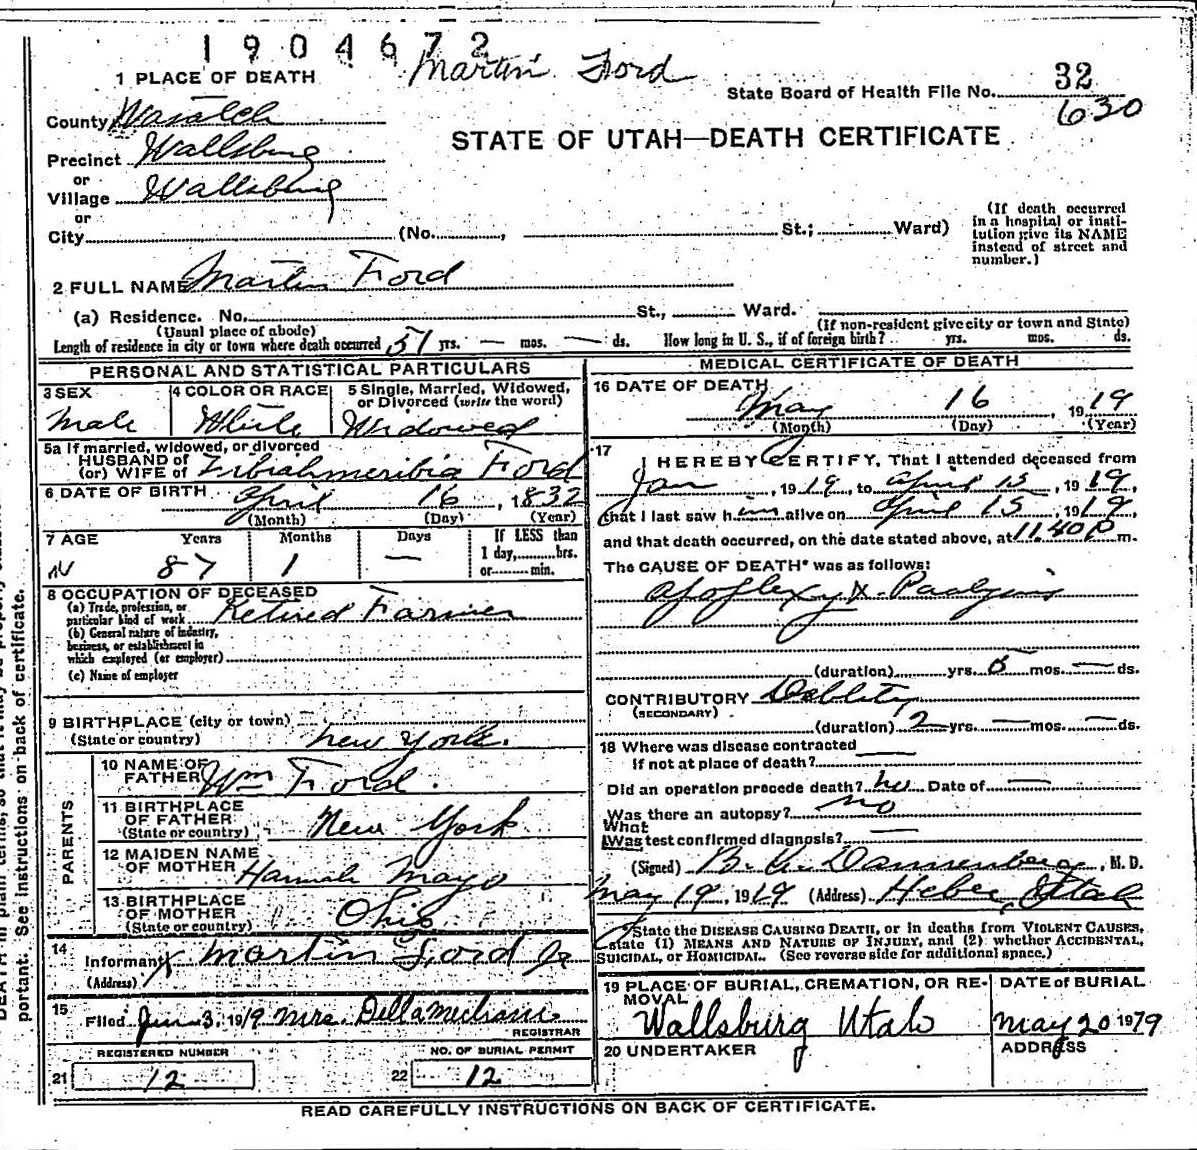 1904672
Martin Ford
1 PLACE OF DEATH
State Board of Health File No. 32
630
County Wasatch
STATE OF UTAH—DEATH CERTIFICATE
Precinct Wallsburg
or
Village Wallsburg
or
City (No. , St.; Ward)
(If death occurred in a hospital or insti-
tution give its NAME
instead of street and
number.)
2 FULL NAME Martin Ford
(a) Residence. No. St., Ward.
(Usual place of abode) (If non-resident give city or town and State)
Length of residence in city or town where death occurred 51 yrs. — mos. — ds. How long in U. S., if of foreign birth? yrs. mos. ds.
PERSONAL AND STATISTICAL PARTICULARS
3 SEX
Male
4 COLOR OR RACE
White
5 Single, Married, Widowed,
or Divorced (write the word)
Widowed
5a If married, widowed, or divorced
HUSBAND of
(or) WIFE of Ford
6 DATE OF BIRTH April 16, 1832
(Month) (Day) (Year)
7 AGE Years Months Days If LESS than
1 day, hrs.
or min.
87 1 —
8 OCCUPATION OF DECEASED
(a) Trade, profession, or
particular kind of work Retired Farmer
(b) General nature of industry,
business, or establishment in
which employed (or employer)
(c) Name of employer
9 BIRTHPLACE (city or town)
(State or country) New York.
PARENTS
10 NAME OF
FATHER Wm Ford.
11 BIRTHPLACE
OF FATHER
(State or country) New York
12 MAIDEN NAME
OF MOTHER Hannah Mayo
13 BIRTHPLACE
OF MOTHER
(State or country) Ohio
14
Informant Martin Ford Jr
(Address)
15
Filed Jun 3, 1919 Mrs. Della Mecham
REGISTRAR
REGISTERED NUMBER
21 12
NO. OF BURIAL PERMIT
22 12
MEDICAL CERTIFICATE OF DEATH
16 DATE OF DEATH
May 16, 1919
(Month) (Day) (Year)
17
I HEREBY CERTIFY, That I attended deceased from
Jan, 1919, to April 15, 1919,
that I last saw him alive on April 15, 1919,
and that death occurred, on the date stated above, at 11.40 P m.
The CAUSE OF DEATH* was as follows:
Apoplexy &
(duration) yrs. 5 mos. — ds.
CONTRIBUTORY Debility
(SECONDARY)
(duration) 2 yrs. — mos. — ds.
18 Where was disease contracted
If not at place of death? —
Did an operation precede death? no Date of —
Was there an autopsy? no
What
Was test confirmed diagnosis? —
(Signed) Dannenberg, M. D.
May 19, 1919 (Address) Heber, Utah
State the DISEASE CAUSING DEATH, or in deaths from VIOLENT CAUSES,
state (1) MEANS AND NATURE OF INJURY, and (2) whether ACCIDENTAL,
SUICIDAL, or HOMICIDAL. (See reverse side for additional space.)
19 PLACE OF BURIAL, CREMATION, OR RE-
MOVAL
Wallsburg Utah
DATE of BURIAL
May 20 1979
20 UNDERTAKER
ADDRESS
READ CAREFULLY INSTRUCTIONS ON BACK OF CERTIFICATE.
DEATH in plain terms, so that it may be properly
portant. See instructions on back of certificate.